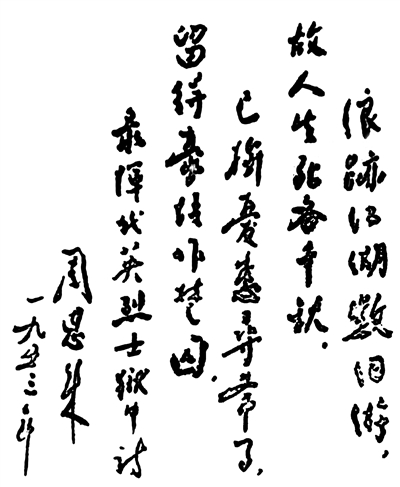 浪跡江湖憶旧游，
故人生死各千秋，
已擯憂患尋常事，
留得豪情作楚囚。
录惲代英烈士獄中詩
周恩来
一九五三年